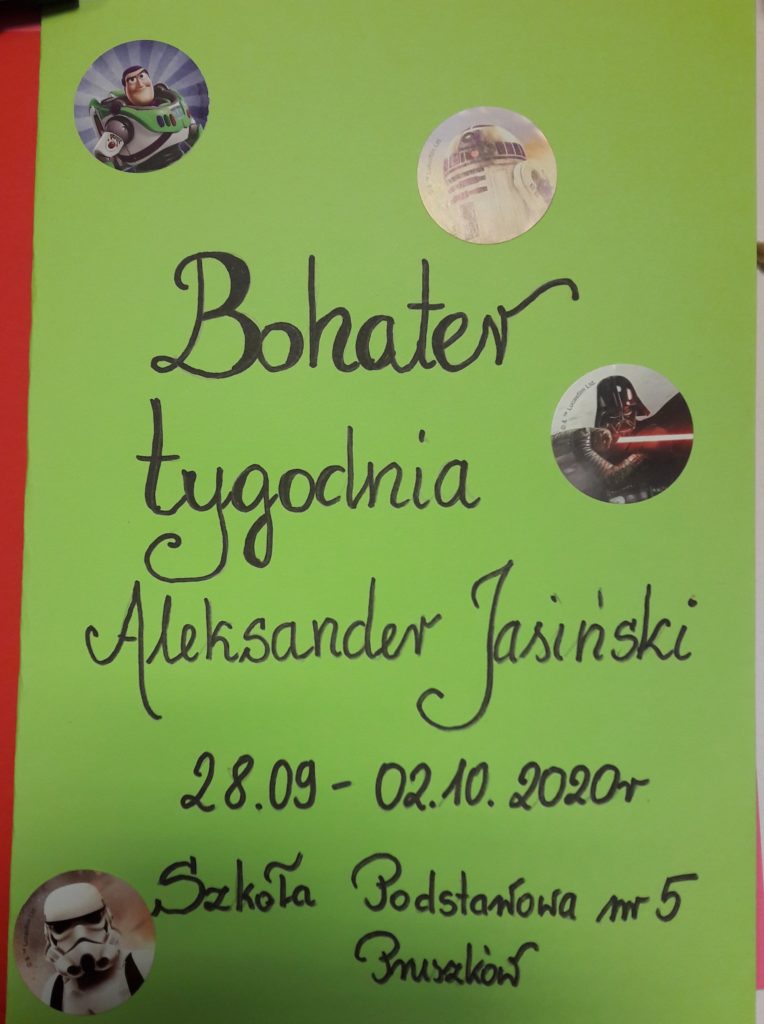 Bohater
tygodnia
Aleksander Jasiński
28.09 - 02.10. 2020r
Szkoła Podstawowa nr 5
Pruszków
© & ™ Lucasfilm Ltd.